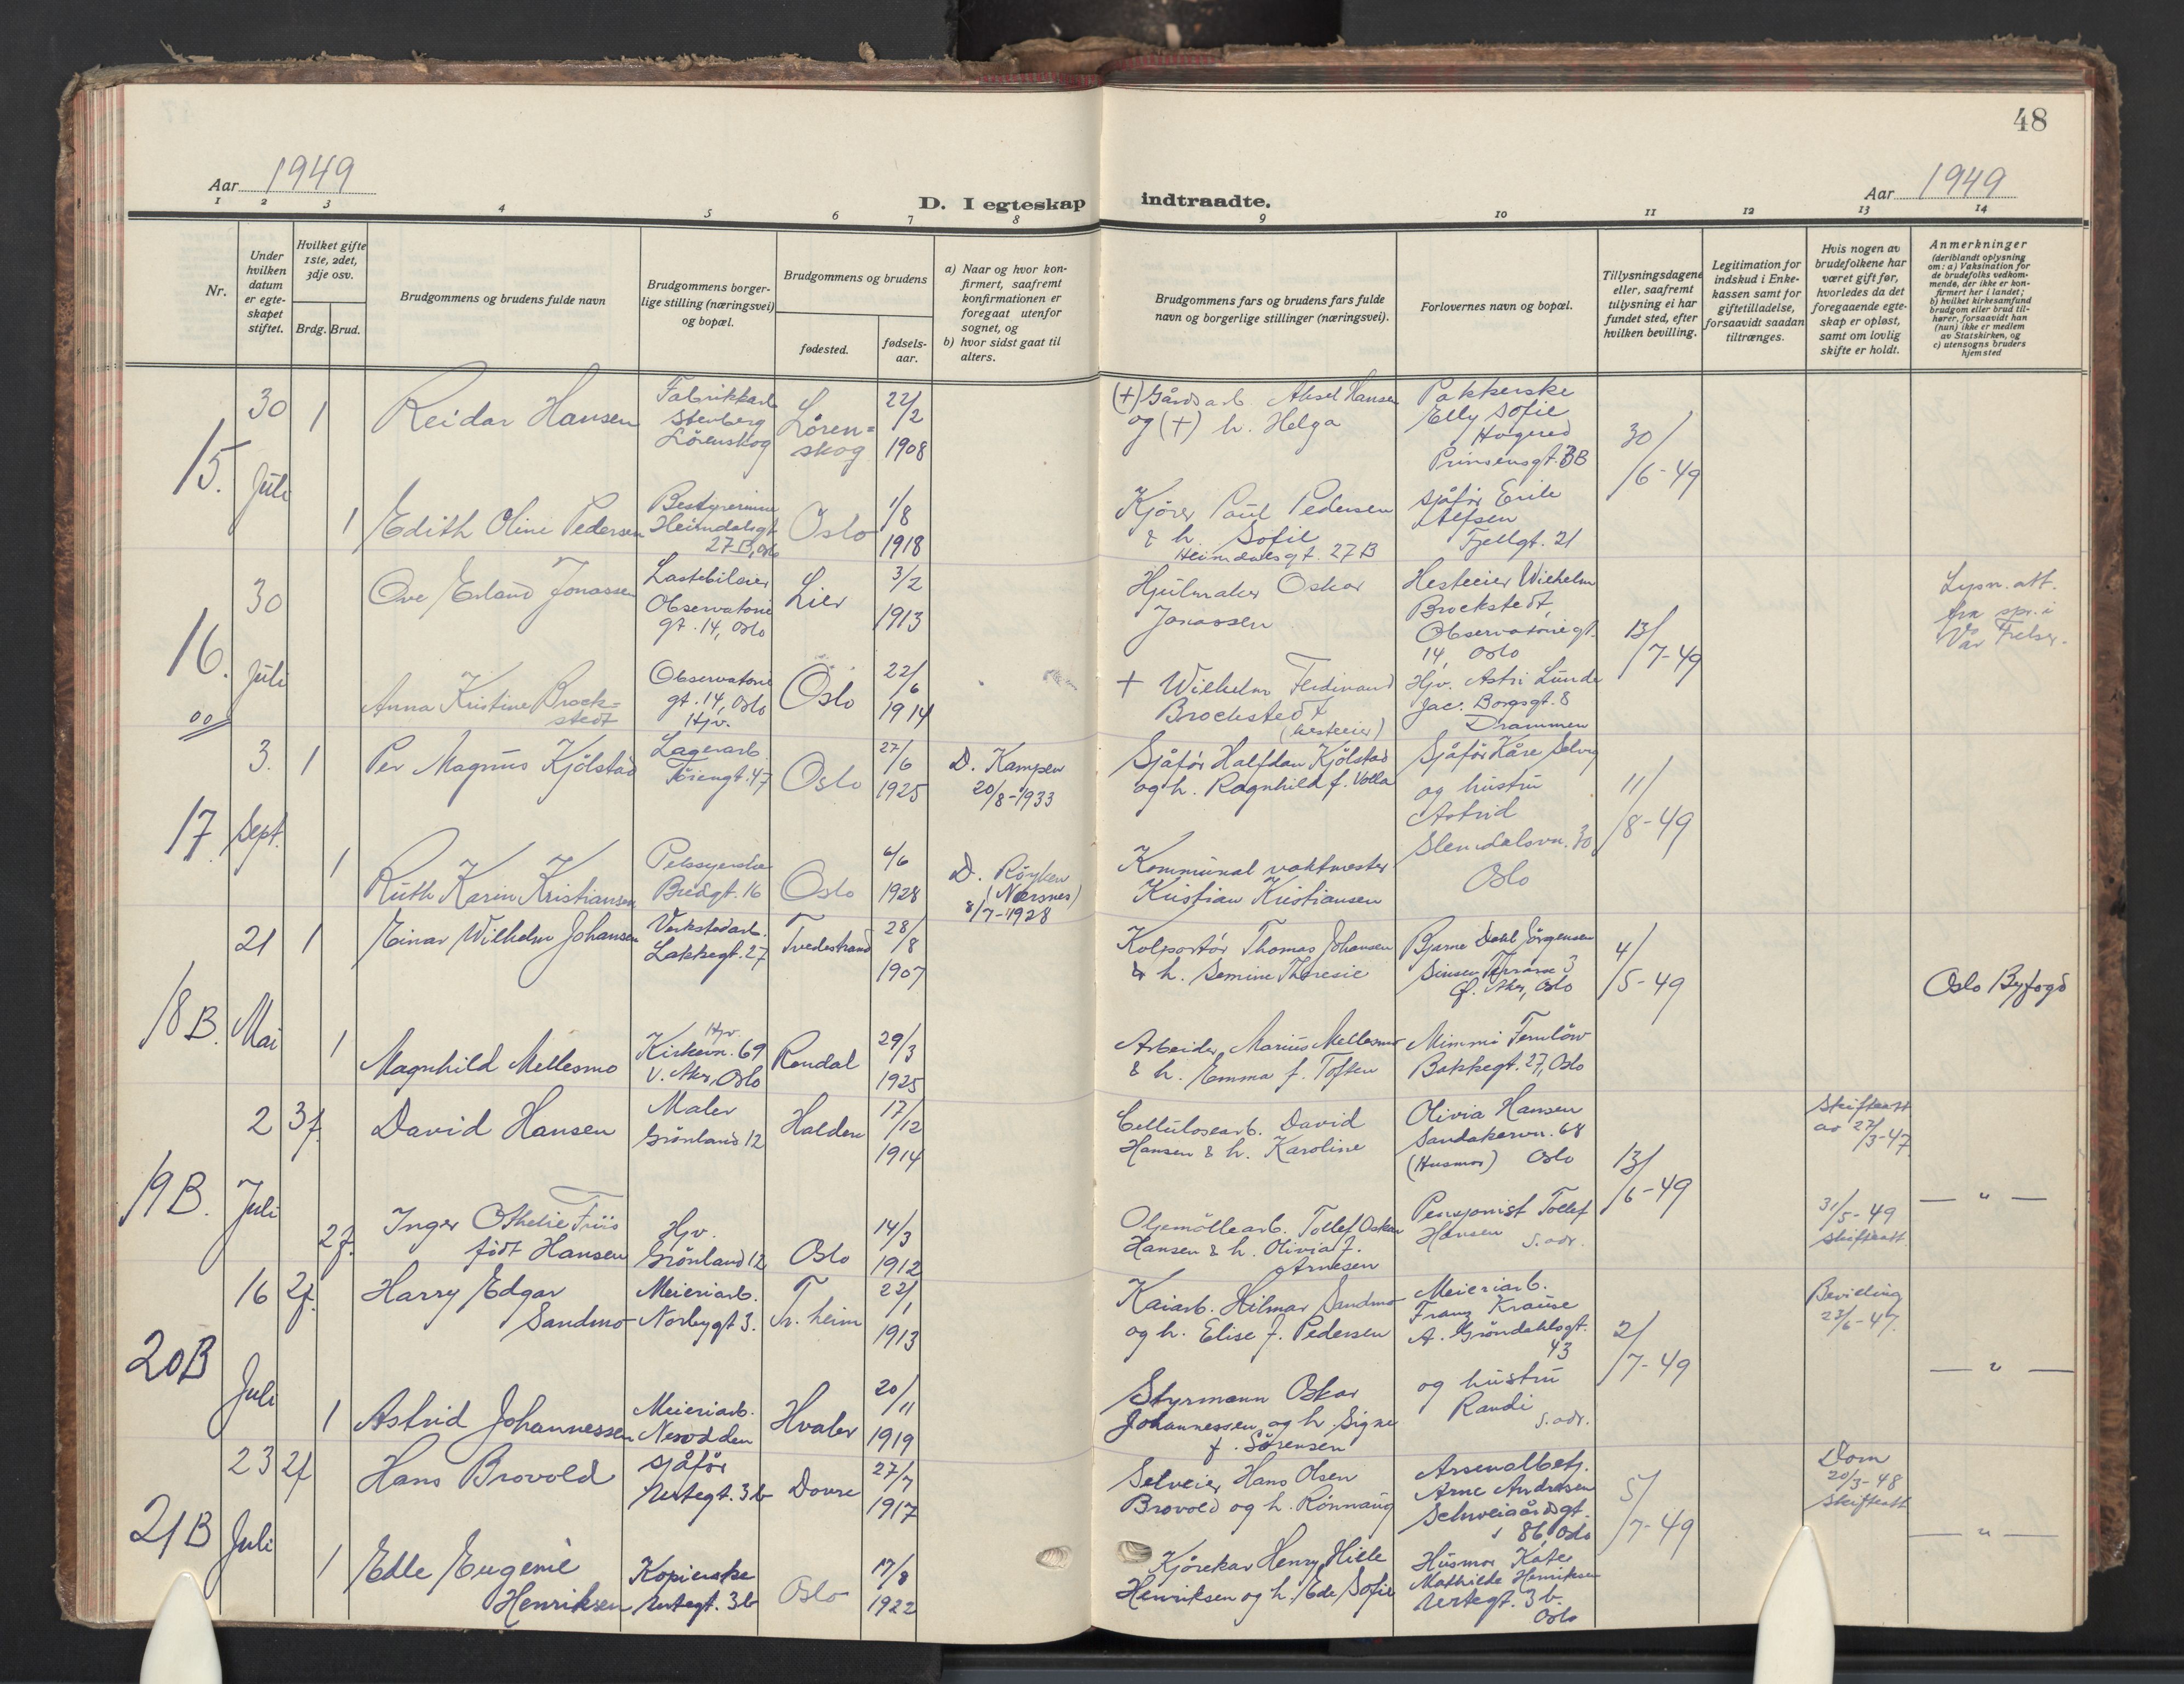 48
Aar 1949
D. I egteskap indtraadte.
Aar 1949
1 2 3 4 5 6 7 8 9 10 11 12 13 14
Nr.
Under hvilken datum er egte- skapet stiftet.
Hvilket gifte 1ste, 2det, 3dje osv.
Brdg. Brud.
Brudgommens og brudens fulde navn
Brudgommens borger- lige stilling (næringsvei) og bopæl.
Brudgommens og brudens
fødested.
fødsels- aar.
a) Naar og hvor kon- firmert, saafremt konfirmationen er foregaat utenfor sognet, og
b) hvor sidst gaat til alters.
Brudgommens fars og brudens fars fulde navn og borgerlige stillinger (næringsvei).
Forlovernes navn og bopæl.
Tillysningsdagene eller, saafremt tillysning ei har fundet sted, efter hvilken bevilling.
Legitimation for indskud i Enke- kassen samt for giftetilladelse, forsaavidt saadan tiltrænges.
Hvis nogen av brudefolkene har været gift før, hvorledes da det foregaaende egte- skap er opløst, samt om lovlig skifte er holdt.
Anmerkninger (deriblandt oplysning om: a) Vaksination for de brudefolks vedkom- mende, der ikke er kon- firmert her i landet; b) hvilket kirkesamfund brudgom eller brud til- hører, forsaavidt han (hun) ikke er medlem av Statskirken, og c) utensogns bruders hjemsted
15. 30 Juli
1 Reidar Hansen
Fabrikkarb. Stenberg Lörenskog
Lören= skog
22/2 1908
(+) Gårdsarb. Aksel Hansen og (+) h. Helga
Pakkerske Elly Sofie Prinsensgt. 3B
30/6-49
1 Edith Oline Pedersen
Bestyrerinne Heimdalsgt. 27 B, Oslo
Oslo
1/8 1918
Kjörer Paul Pedersen & h. Sofie Heimdalsgt. 27 B
Sjåför Erik Alfsen Fjellgt. 21
16. 30 Juli
Ove Erland Jonassen
Lastebileier Observatorie gt. 14, Oslo
Lier
3/2 1913
Hjulmaker Oskar Jonassen
Hesteeier Wilhelm Brockstedt, Observatoriegt. 14, Oslo
13/7-49
Lysn. att. fra spr. i Vår Frelser.
Anna Kristine Brock= stedt
Observatorie gt. 14, Oslo Hjv.
Oslo
22/6 1914
+ Wilhelm Ferdinand Brockstedt (hesteeier)
Hjv. Astri Lunde Jac. Borgsgt. 8 Drammen
17. 3. Sept.
1 Per Magnus Kjölstad
Lagerarb. Töiengt. 47
Oslo
27/6 1925
D. Kampen 20/8-1933
Sjåför Halfdan Kjölstad og h. Ragnhild f. Volla
Sjåför Kåre Selvig og hustru Astrid Slemdalsvn. 30 Oslo
11/8-49
1 Ruth Karin Kristiansen
Pelssyerske Bredgt. 16
Oslo
6/6 1928
D. Röyken (Nærsnes) 8/7-1928
Kommunal vaktmester Kristian Kristiansen
18 B. 21 Mai
1 Einar Wilhelm Johansen
Verkstedarb. Lakkegt. 27
Tvedestrand
28/8 1907
Kolportör Thomas Johansen & h. Semine Theresie
Bjarne Dahl Jörgensen Sinsen Terrasse 3 Ö. Aker, Oslo
4/5-49
Oslo Byfogd
1 Magnhild Mellesmo
Hjv. Kirkevn. 69 V. Aker, Oslo
Rendal
29/3 1925
Arbeider Marius Mellesmo & h. Emma f. Toften
Mimmi Fernlöw Bakkegt. 27, Oslo
19 B. 2 Juli
3 f. David Hansen
Maler Grönland 12
Halden
17/12 1914
Cellulosearb. David Hansen & h. Karoline
Olivia Hansen Sandakervn. 68 (Husmor) Oslo
13/6-49
Skifteatt. av 27/3-47
— " —
2 f. Inger Othelie Friis född Hansen
Hjv. Grönland 12
Oslo
14/3 1912
Oljemöllearb. Tollef Oskar Hansen & h. Olivia f. Arnesen
Pensjonist Tollef Hansen s. adr.
31/5-49 skifteatt.
20 B 16 Juli
2 f. Harry Edgar Sandmo
Meieriarb. Norbygt 3.
Tr. heim
22/1 1913
Kaiarb. Hilmar Sandmo og h. Elise f. Pedersen
Meieriarb. Franz Krause A. Gröndahlsgt. 43 og hustru Randi s. adr.
2/7-49
Bevilling 23/6-47.
— " —
1 Astrid Johannessen
Meieriarb. Nesodden
Hvaler
20/11 1919
Styrmann Oskar Johannessen og h. Signe f. Sörensen
21 B 23 Juli
2 f Hans Brovold
Sjåför Urtegt. 3 b
Dovre
27/7 1917
Selveier Hans Olsen Brovold og h. Rönnaug
Arsenalbetj. Arne Andresen Schweigårdsgt. 86, Oslo
5/7-49
Dom 20/3-48 Skifteatt.
— " —
1 Edle Eugenie Henriksen
Kopierske Urtegt. 3 b
Oslo
17/8 1922
Kjörekar Henry Hille Henriksen og h. Eda Sofie
Husmor Kate Mathilde Henriksen Urtegt. 3 b. Oslo